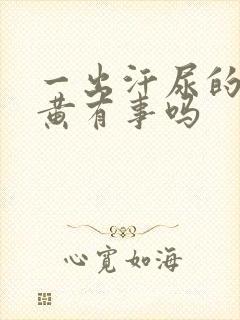 一出汗尿的
黄有事吗
心宽如海